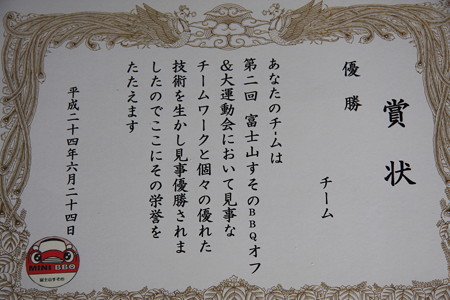 賞状
優勝
チーム
あなたのチームは
第二回 富士山すそのBBQオフ
&大運動会において見事な
チームワークと個々の優れた
技術を生かし見事優勝されま
したのでここにその栄誉を
たたえます
平成二十四年六月二十四日
MINI BBQ